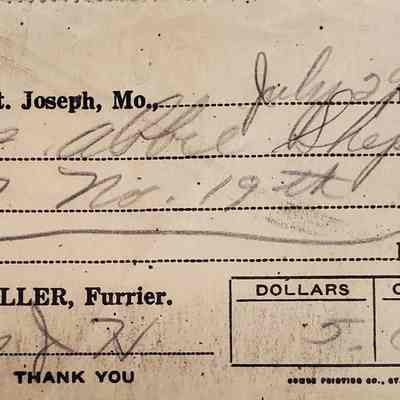 t. Joseph, Mo., July 29
Abbie Shep
No. 19th
LLER, Furrier.
DOLLARS C
J H 5-
THANK YOU
COMBE PRINTING CO., ST.